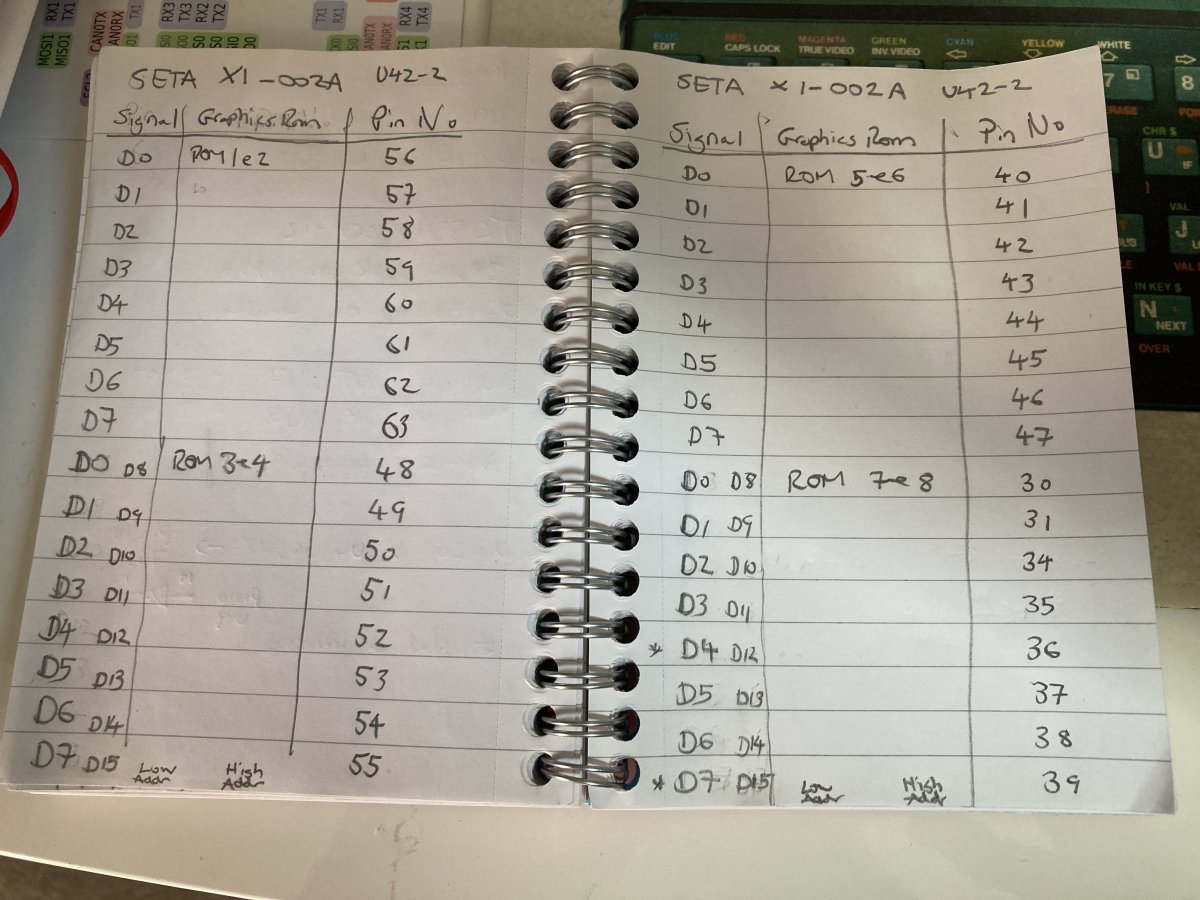 MOSI1 RX1
MISO1 TX1
CAN0TX TX1
CAN0RX
RX3 TX1
TX3 RX1
RX2
TX2
CAN0TX RX4
CAN0RX TX4
BLUE RED MAGENTA GREEN CYAN YELLOW WHITE
EDIT CAPS LOCK TRUE VIDEO INV. VIDEO
7 8
CHR $
U
IF
VAL
J
IN KEY $
N
NEXT
OVER
SETA X1-002A U42-2
Signal Graphics Rom Pin No
D0 ROM 1e2 56
D1 Lo 57
D2 58
D3 59
D4 60
D5 61
D6 62
D7 63
D0 D8 ROM 3e4 48
D1 D9 49
D2 D10 50
D3 D11 51
D4 D12 52
D5 D13 53
D6 D14 54
D7 D15 Low Addr High Addr 55
SETA X1-002A U42-2
Signal Graphics Rom Pin No
D0 ROM 5e6 40
D1 41
D2 42
D3 43
D4 44
D5 45
D6 46
D7 47
D0 D8 ROM 7e8 30
D1 D9 31
D2 D10 34
D3 D11 35
* D4 D12 36
D5 D13 37
D6 D14 38
* D7 D15 Low Addr High Addr 39